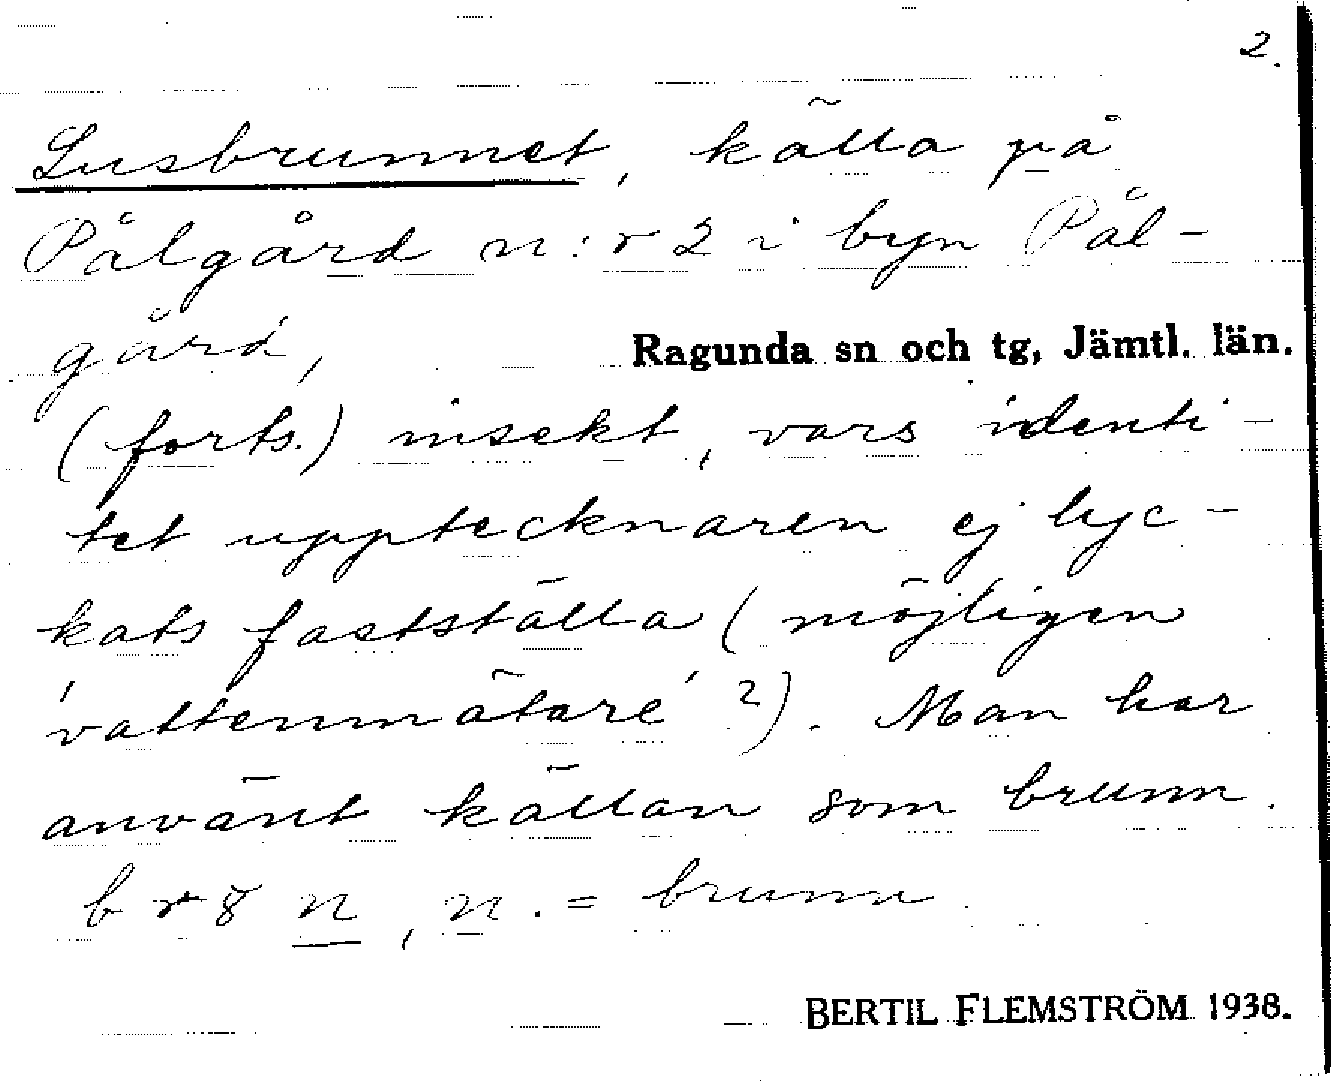 2.
Lusbrunnet, källa på
Pålgård n:r 2 i byn Pål-
gård,
Ragunda sn och tg, Jämtl. län.
(forts.) insekt, vars identi-
tet upptecknaren ej lyc-
kats fastställa (möjligen
'vattenmätare' ?). Man har
använt källan som brunn.
br8n, n. = brunn.
BERTIL FLEMSTRÖM 1938.